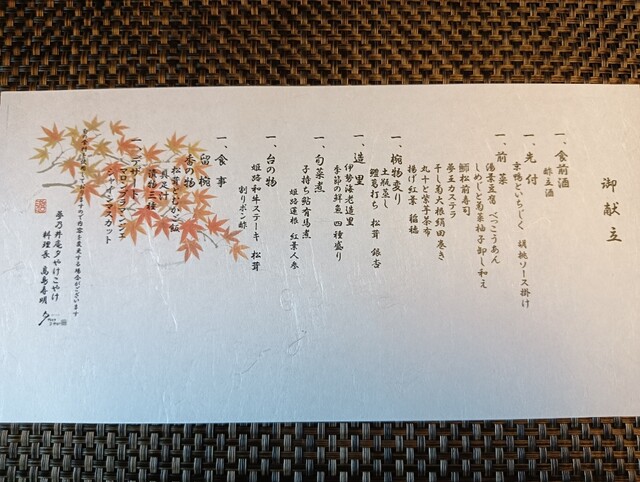 御献立
一、食前酒
酢立酒
一、先付
京芋といちじく 胡桃ソース掛け
一、前菜
湯葉豆腐 べっこうあん
しめじと菊菜柚子卸し和え
鯛松前寿司
夢王カステラ
干し葡萄大根絹田巻き
丸十と紫芋茶巾
揚げ紅葉 稲穂
一、椀物変り
土瓶蒸し
鱧葛打ち 松茸 銀杏
一、造里
伊勢海老造里
季節の鮮魚四種盛り
一、旬菜煮
子持ち鮎有馬煮
姫路蓮根 紅葉人参
一、台の物
姫路和牛ステーキ 松茸
割りポン酢
一、食事
松茸とむかご飯
留椀
貝足汁
香の物
漬物三種
一、デザート
マロンブラマンジェ
シャインマスカット
夢乃井庵夕やけこやけ
料理長